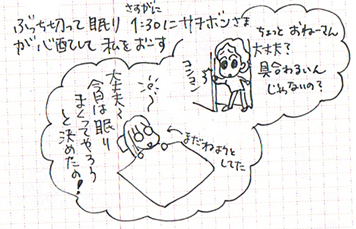 ぶっち切って眠り 1:30にサチボンさま
さすがに
が心配して 私をおこす
ちょっと おねーさん
大丈夫?
具合わるいん
じゃないの?
ヨシヨシ
大丈夫〜
今日は眠り
まくってやろう
と決めたの!
まだねようと
してた